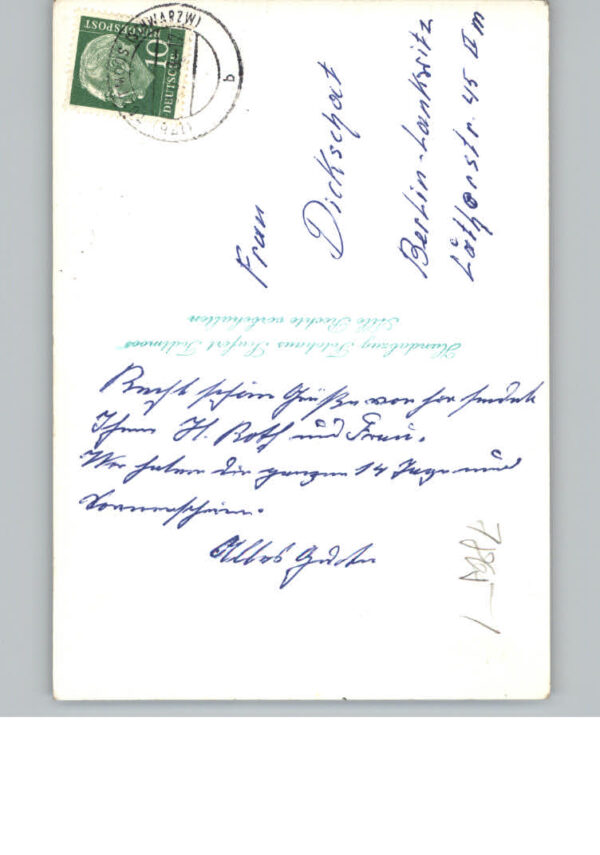 DEUTSCHE
BUNDESPOST
10
b
Frau
Dickschat
Berlin-Lankwitz
45 II m
Handabzug Fotohaus Seufert Todtmoos
Alle Rechte vorbehalten
Recht schöne Grüße von hier sendet
Ihnen H. Roth und Frau.
Wir haben die ganzen 14 Tage nur
Sonnenschein.
Alles Gute